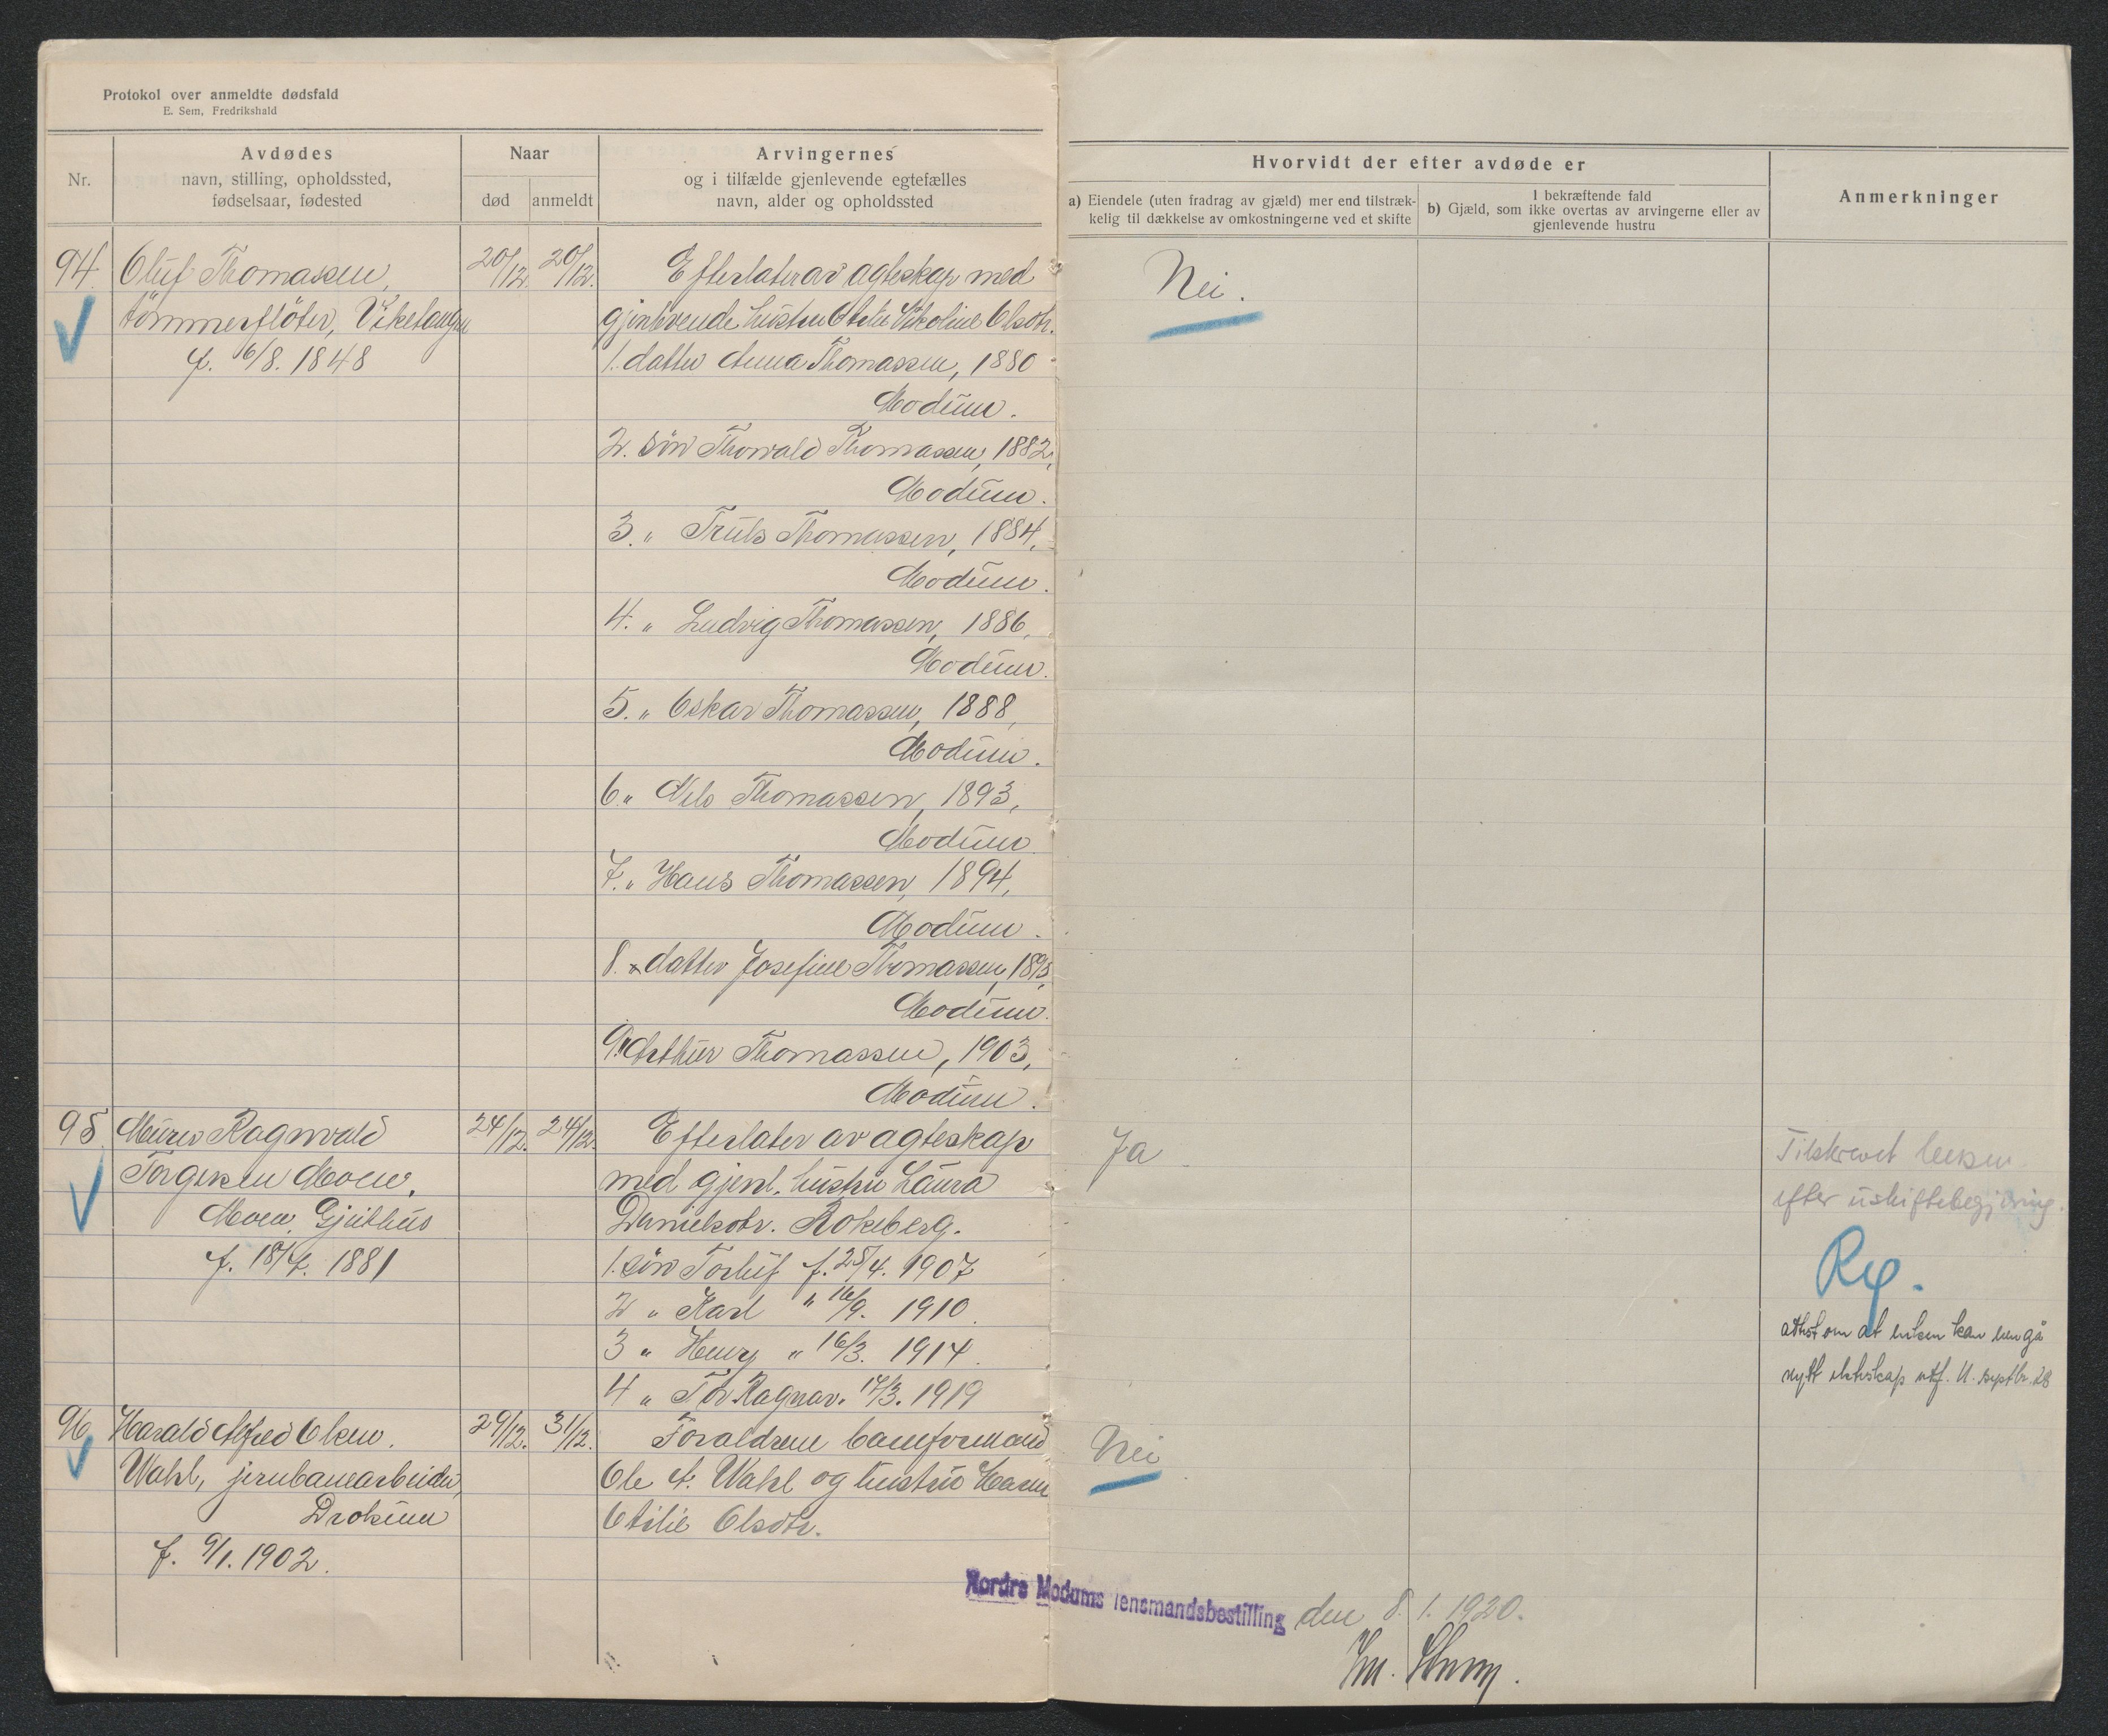 Protokol over anmeldte dødsfald
E. Sem, Fredrikshald
Nr.
Avdødes
navn, stilling, opholdssted,
fødselsaar, fødested
Naar
død
anmeldt
Arvingernes
og i tilfælde gjenlevende egtefælles
navn, alder og opholdssted
Hvorvidt der efter avdøde er
a) Eiendele (uten fradrag av gjæld) mer end tilstræk-
kelig til dækkelse av omkostningerne ved et skifte
I bekræftende fald
b) Gjæld, som ikke overtas av arvingerne eller av
gjenlevende hustru
Anmerkninger
94. Oluf Thomassen, 20/12. 20/12.
tømmerfløter, Viketangen
f. 16/8. 1848
Efterlater av ægteskap med
gjenlevende hustru Otelie Nikoline Olsdtr.
1. datter Anna Thomassen, 1880
Modum.
2. søn Thorvald Thomassen, 1882,
Modum.
3. " Truls Thomassen, 1884,
Modum.
4. " Ludvig Thomassen, 1886,
Modum.
5. " Oskar Thomassen, 1888,
Modum.
6. " Nils Thomassen, 1893,
Modum
7. " Hans Thomassen, 1894,
Modum.
8. datter Josefine Thomassen, 1895,
Modum.
9. " Arthur Thomassen, 1903,
Modum.
Nei.
95 Ragnvald 24/12. 24/12.
Torgersen Moen,
Moen, Gjuthus
f. 18/4. 1881
Efterlater av ægteskap
med gjenl. hustru Laura
Danielsdtr. Rokeberg.
1. søn Torluf f. 25/4. 1907
2 " Karl " 16/9. 1910.
3 " Henry " 16/3. 1914.
4 " Tor Ragnar. 17/3. 1919
Ja
Tilskrevet enken
efter uskiftebegjæring.
Rp.
attest om at enken kan inngå
nytt ekteskap utf. 11. septbr. 28
96 Harald Alfred Olsen 29/12. 31/12.
Wahl, jernbanearbeider,
Drolsum
f. 9/1. 1902.
Forældrene baneformand
Ole A. Wahl og hustru Karen
Otilie Olsdtr.
Nei
Nordre Modums lensmandsbestilling den 8. 1. 1920.